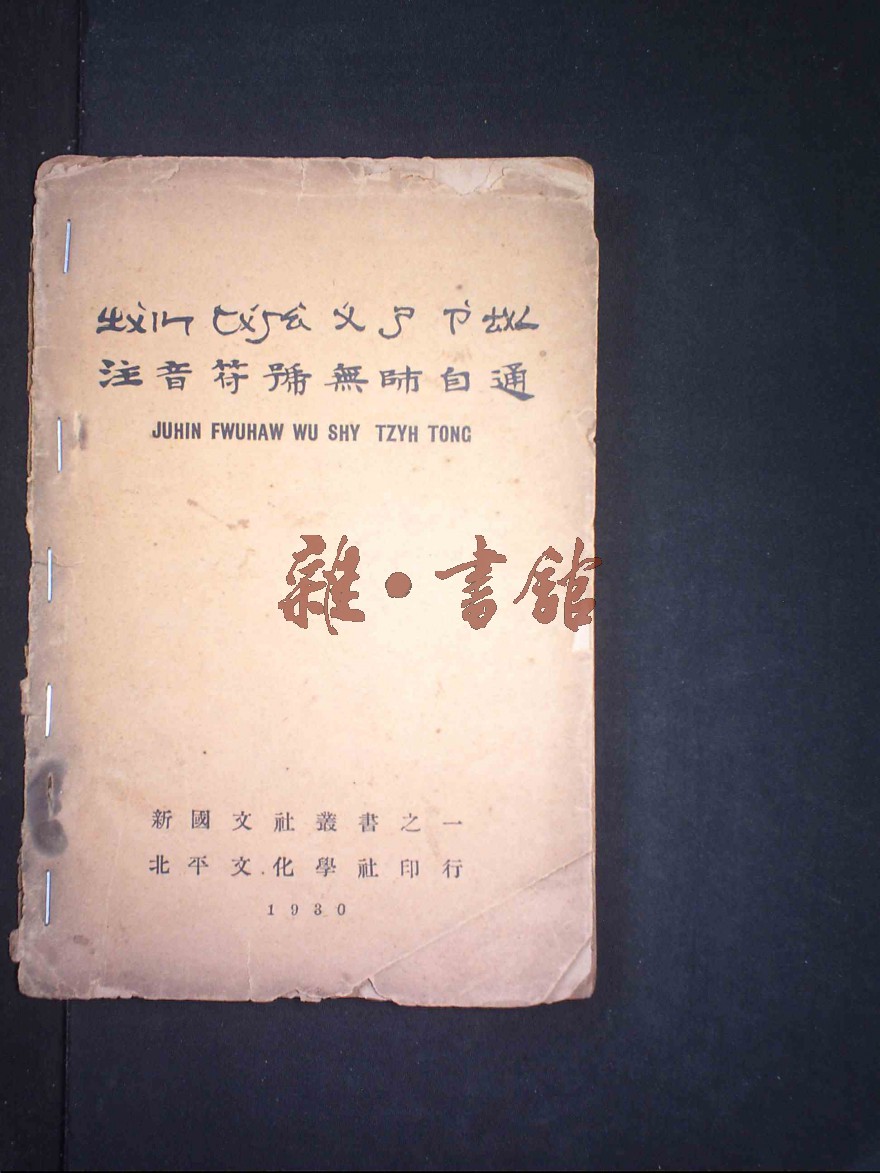 ㄓㄨˋㄧㄣ ㄈㄨˊㄏㄠˋ ㄨˊ ㄕ ㄗˋ ㄊㄨㄥ
注音符號無師自通
JUHIN FWUHAW WU SHY TZYH TONG
雜·書館
新國文社叢書之一
北平文化學社印行
1930